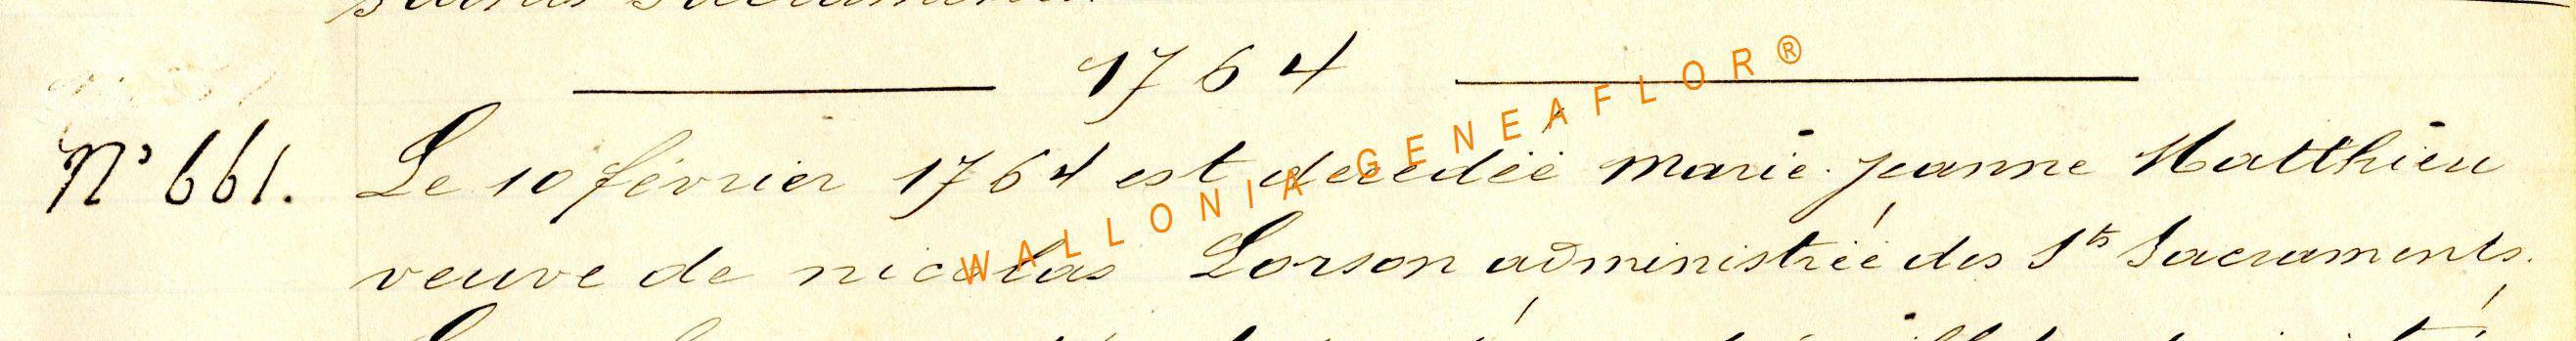 1764
N° 661. Le 10 février 1764 est décédée marie jeanne Matthieu
veuve de nicolas Lorson administrée des Sts Sacraments.
WALLONIA GENEAFLOR®